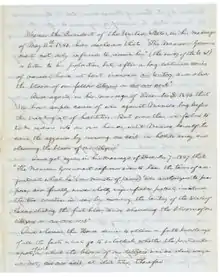 Whereas the President of the United States, in his message
of May 11th 1846, has declared that "The Mexican Govern-
ment not only refused to receive him" (the envoy of the U.S.)
"or listen to his propositions, but, after a long continued series
of menaces, have at last invaded our teritory, and shed
the blood of our fellow citizens on our own soil"
And again, in his message of December 8, 1846 that
"We had ample cause of war against Mexico, long before
the breaking out of hostilities. But even then we forbore to
take redress into our own hands, until Mexico herself be-
came the aggressor by invading our soil in hostile array, and
shedding the blood of our citizens"
And yet again, in his message of December 7, 1847 that
"The Mexican Government refused even to hear the terms of ad-
justment which he (our minister of peace) was authorized to pro-
pose; and finally, under wholly unjustifiable pretexts, involved
the two countries in war, by invading the teritory of the State of
Texas, striking the first blow, and shedding the blood of our
citizens on our own soil"
And whereas this House desires to obtain a full knowledge
of all the facts which go to establish whether the particular
spot of soil on which the blood of our citizens was so shed, was, or
was not, our own soil, at that time; therefore